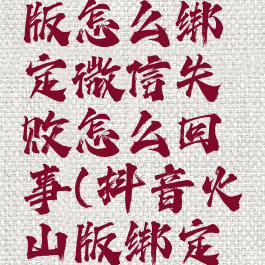 版怎么绑
定微信失
败怎么回
事(抖音火
山版绑定